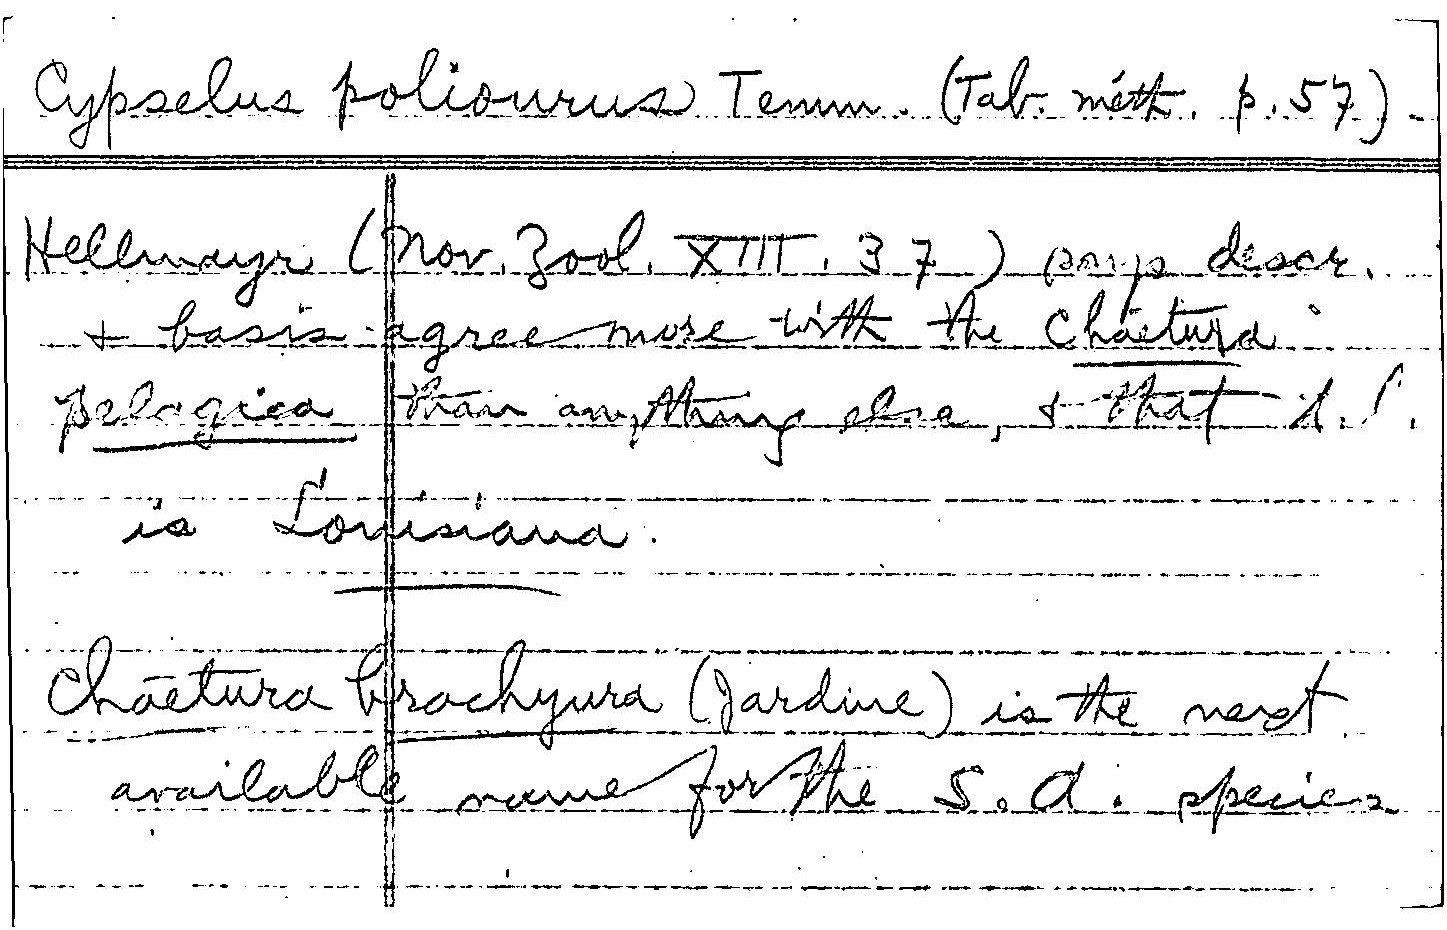 Cypselus poliourus Temm. (Tab. méth. p. 57)
Hellmayr (Nov. Zool. XIII. 37) says descr.
+ basis agree more with the Chaetura
pelagica than anything else, & that t. l.
is Louisiana.
Chaetura brachyura (Jardine) is the next
available name for the S. A. species